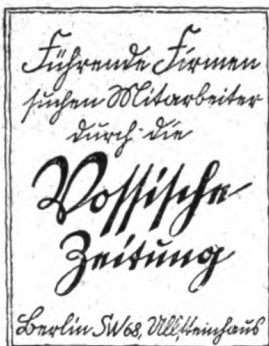 Führende Firmen
suchen Mitarbeiter
durch die
Vossische
Zeitung
Berlin SW68, Ullsteinhaus